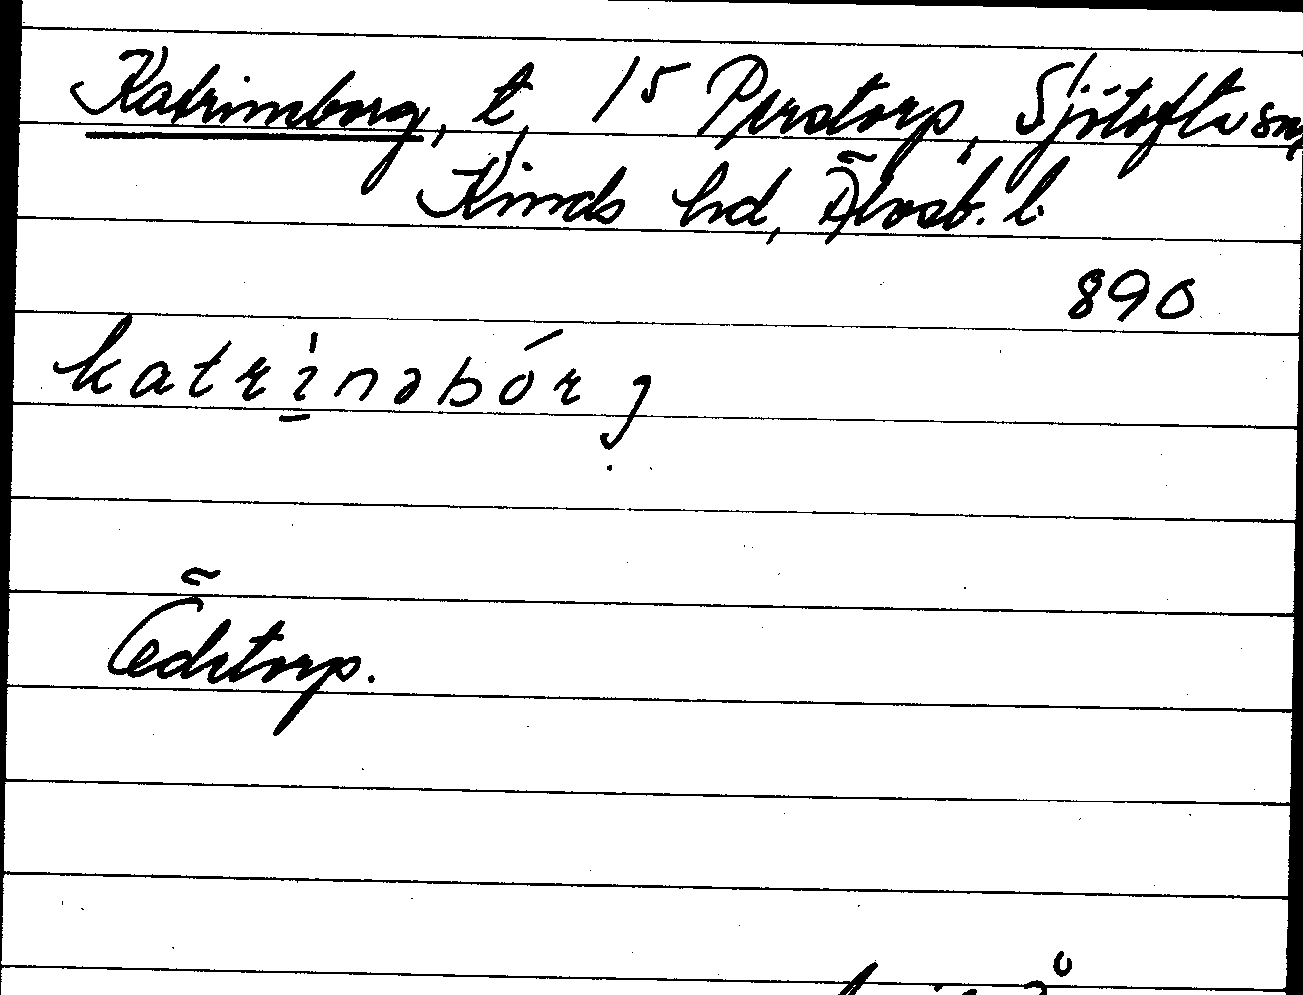 Katrineborg, t, 15 Perstorp, Sjötofta sn,
Kinds hd, Älvsb. l.
890
katrìnəbórj
Ödetorp.